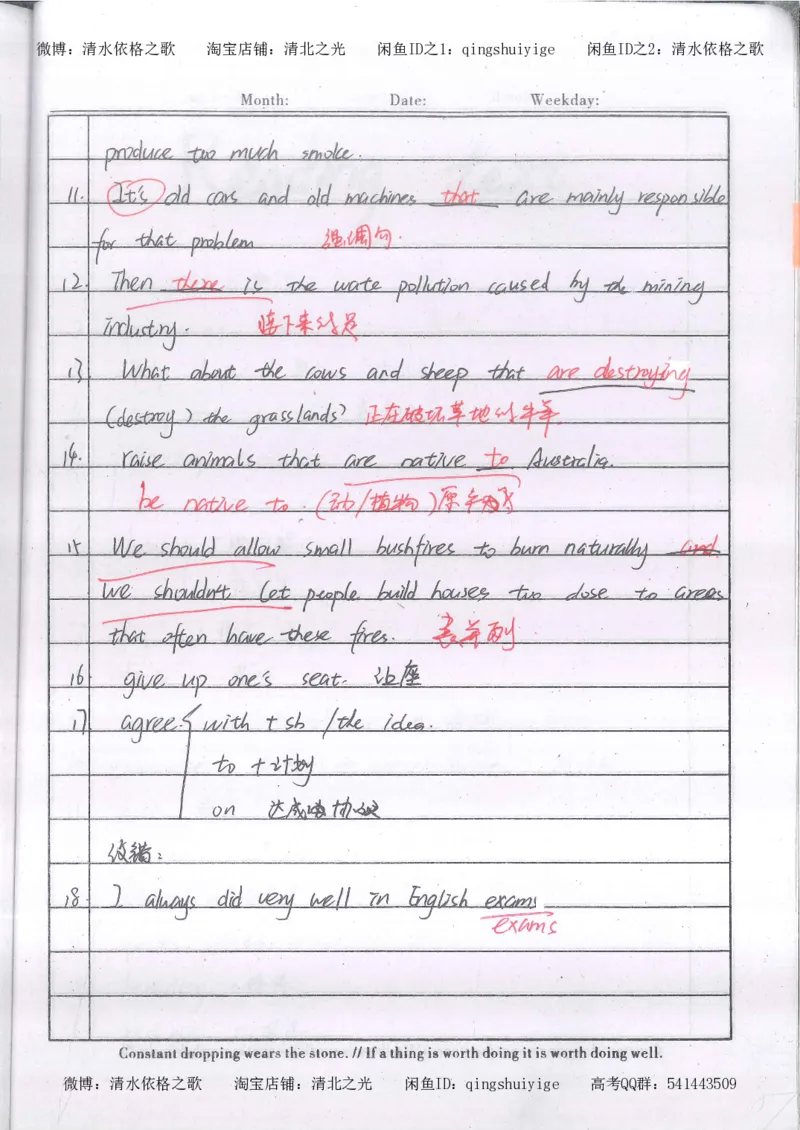 微博：清水依格之歌 淘宝店铺：清北之光 闲鱼ID之1：qingshuiyige 闲鱼ID之2：清水依格之歌
Month: Date: Weekday:
produce too much smoke.
11. It's old cars and old machines that are mainly responsible
for that problem 强调句.
12. Then there is the wate pollution caused by the mining
industry. 接下来的是
13. What about the cows and sheep that are destroying
(destroy) the grasslands? 正在破坏草地的牛羊.
14. raise animals that are native to Australia.
be native to. (动/植物)原产于
15 We should allow small bushfires to burn naturally and
we shouldn't let people build houses too close to areas
that often have these fires. 表并列
16 give up one's seat. 让座
17 agree with + sb /the idea.
to +计划
on 达成协议
改错：
18. I always did very well in English exams
exams
Constant dropping wears the stone. // If a thing is worth doing it is worth doing well.
微博：清水依格之歌 淘宝店铺：清北之光 闲鱼ID：qingshuiyige 高考QQ群：541443509